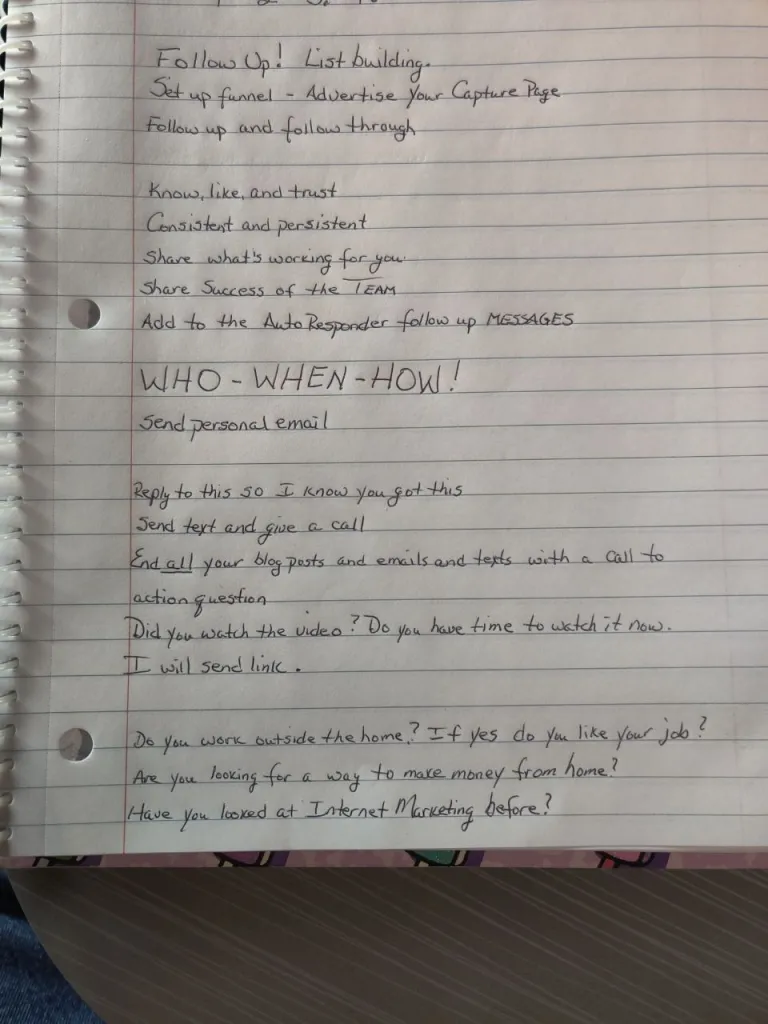 Follow Up! List building.
Set up funnel - Advertise Your Capture Page
Follow up and follow through
Know, like, and trust
Consistent and persistent
Share what's working for you.
Share Success of the TEAM
Add to the AutoResponder follow up MESSAGES
WHO - WHEN - HOW!
Send personal email
Reply to this so I know you got this
Send text and give a call
End all your blog posts and emails and texts with a call to
action question
Did you watch the video? Do you have time to watch it now.
I will send link.
Do you work outside the home? If yes do you like your job?
Are you looking for a way to make money from home?
Have you looked at Internet Marketing before?